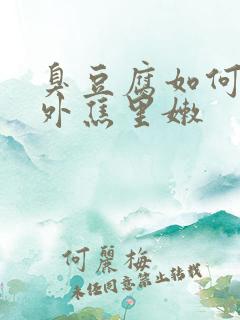 臭豆腐如何
外焦里嫩
何麗梅
未经同意禁止转载